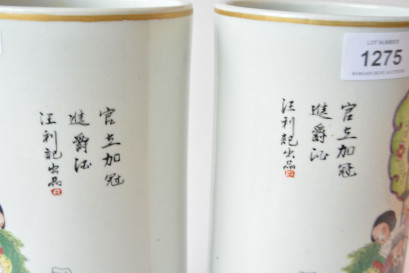 官上加冠
進爵浩
汪利記出品
官上加冠
進爵浩
汪利記出品
LOT NUMBER
1275